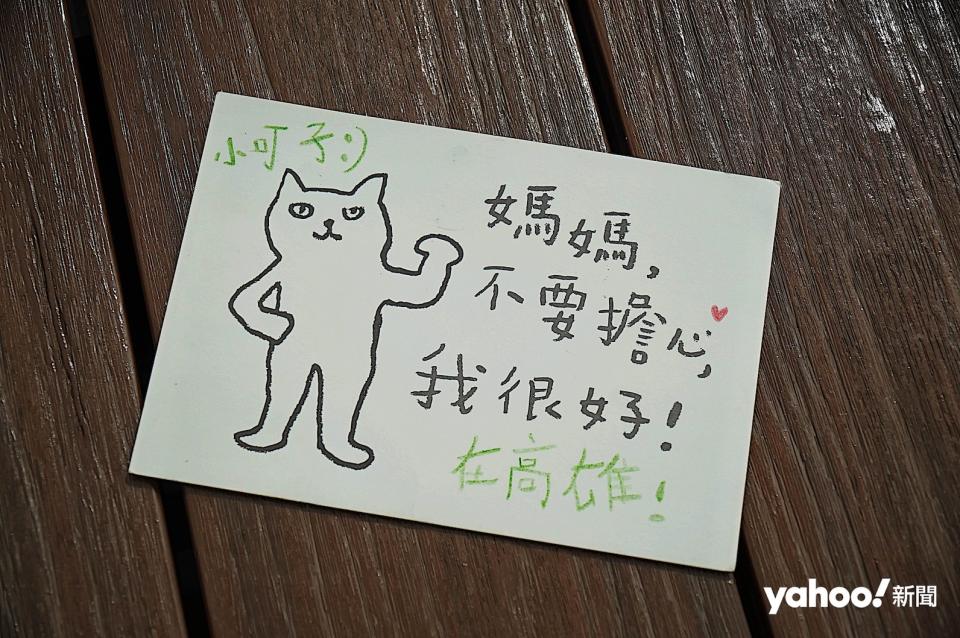 小可子:)
媽媽,
不要擔心,
我很好!
在高雄!
yahoo!新聞